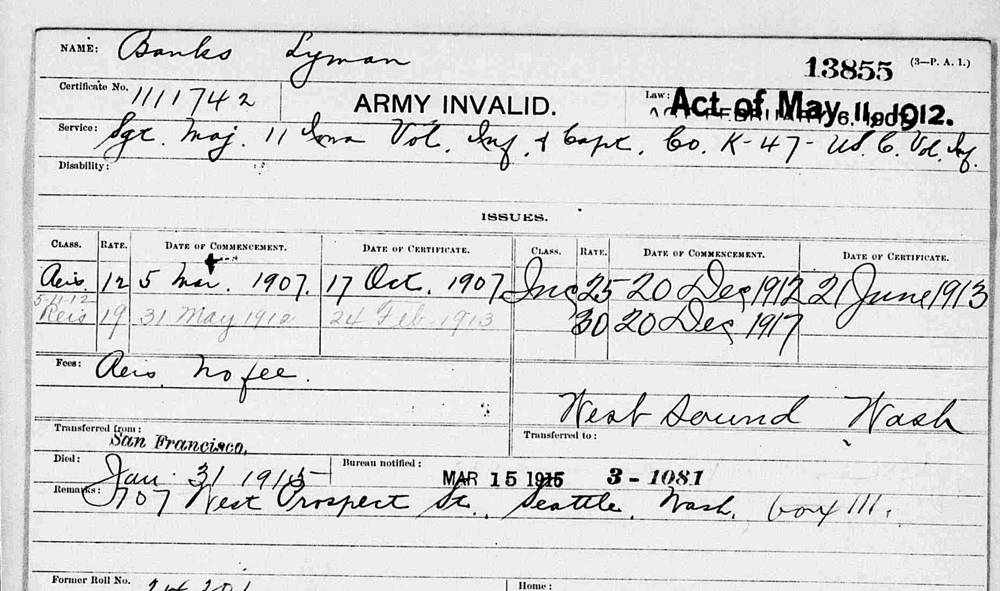 NAME: Banks Lyman 13855 (3—P. A. I.)
Certificate No. 1111742 ARMY INVALID. Law: Act of May 11, 1912.
Service: Sgt. Maj. 11 Iowa Vol. Inf. & Capt. Co. K-47- U.S.C. Vol. Inf.
Disability:
ISSUES.
CLASS. RATE. DATE OF COMMENCEMENT. DATE OF CERTIFICATE. CLASS. RATE. DATE OF COMMENCEMENT. DATE OF CERTIFICATE.
Reis. 12 5 Mar. 1907. 17 Oct. 1907 Inc 25 20 Dec 1912 21 June 1913
5-11-12
Reis 19 31 May 1912 24 Feb 1913 30 20 Dec 1917
Fees: Reis no fee.
West Sound Wash
Transferred from: San Francisco. Transferred to:
Died: Jan. 31 1915 Bureau notified: MAR 15 1915 3-1081
Remarks: 707 West Prospect St., Seattle, Wash. box 111.
Former Roll No. Home: